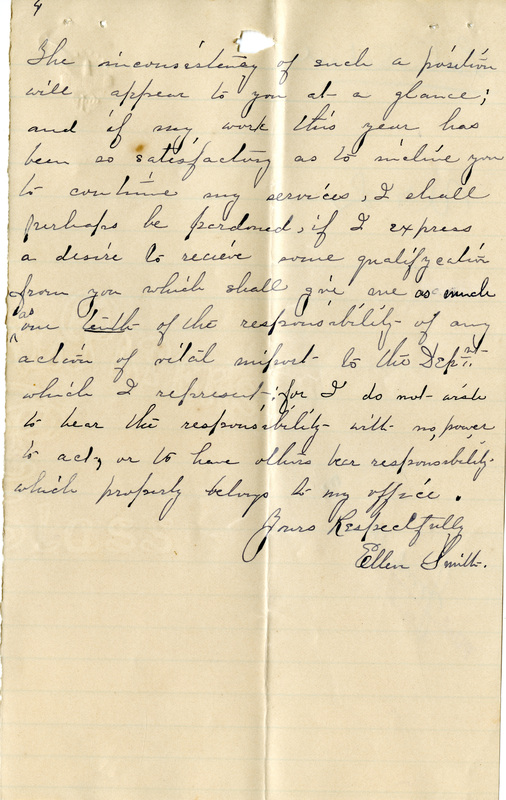 4
The inconsistency of such a position
will appear to you at a glance;
and if my work this year has
been so satisfactory as to incline you
to continue my services, I shall
perhaps be pardoned, if I express
a desire to recieve some qualifycation
from you which shall give me as much
as
one tenth of the responsibility of any
action of vital import to the Dep'mt.
which I represent; for I do not wish
to bear the responsibility with no power
to act, or to have others bear responsibility
which properly belongs to my office.
Yours Respectfully
Ellen Smith.